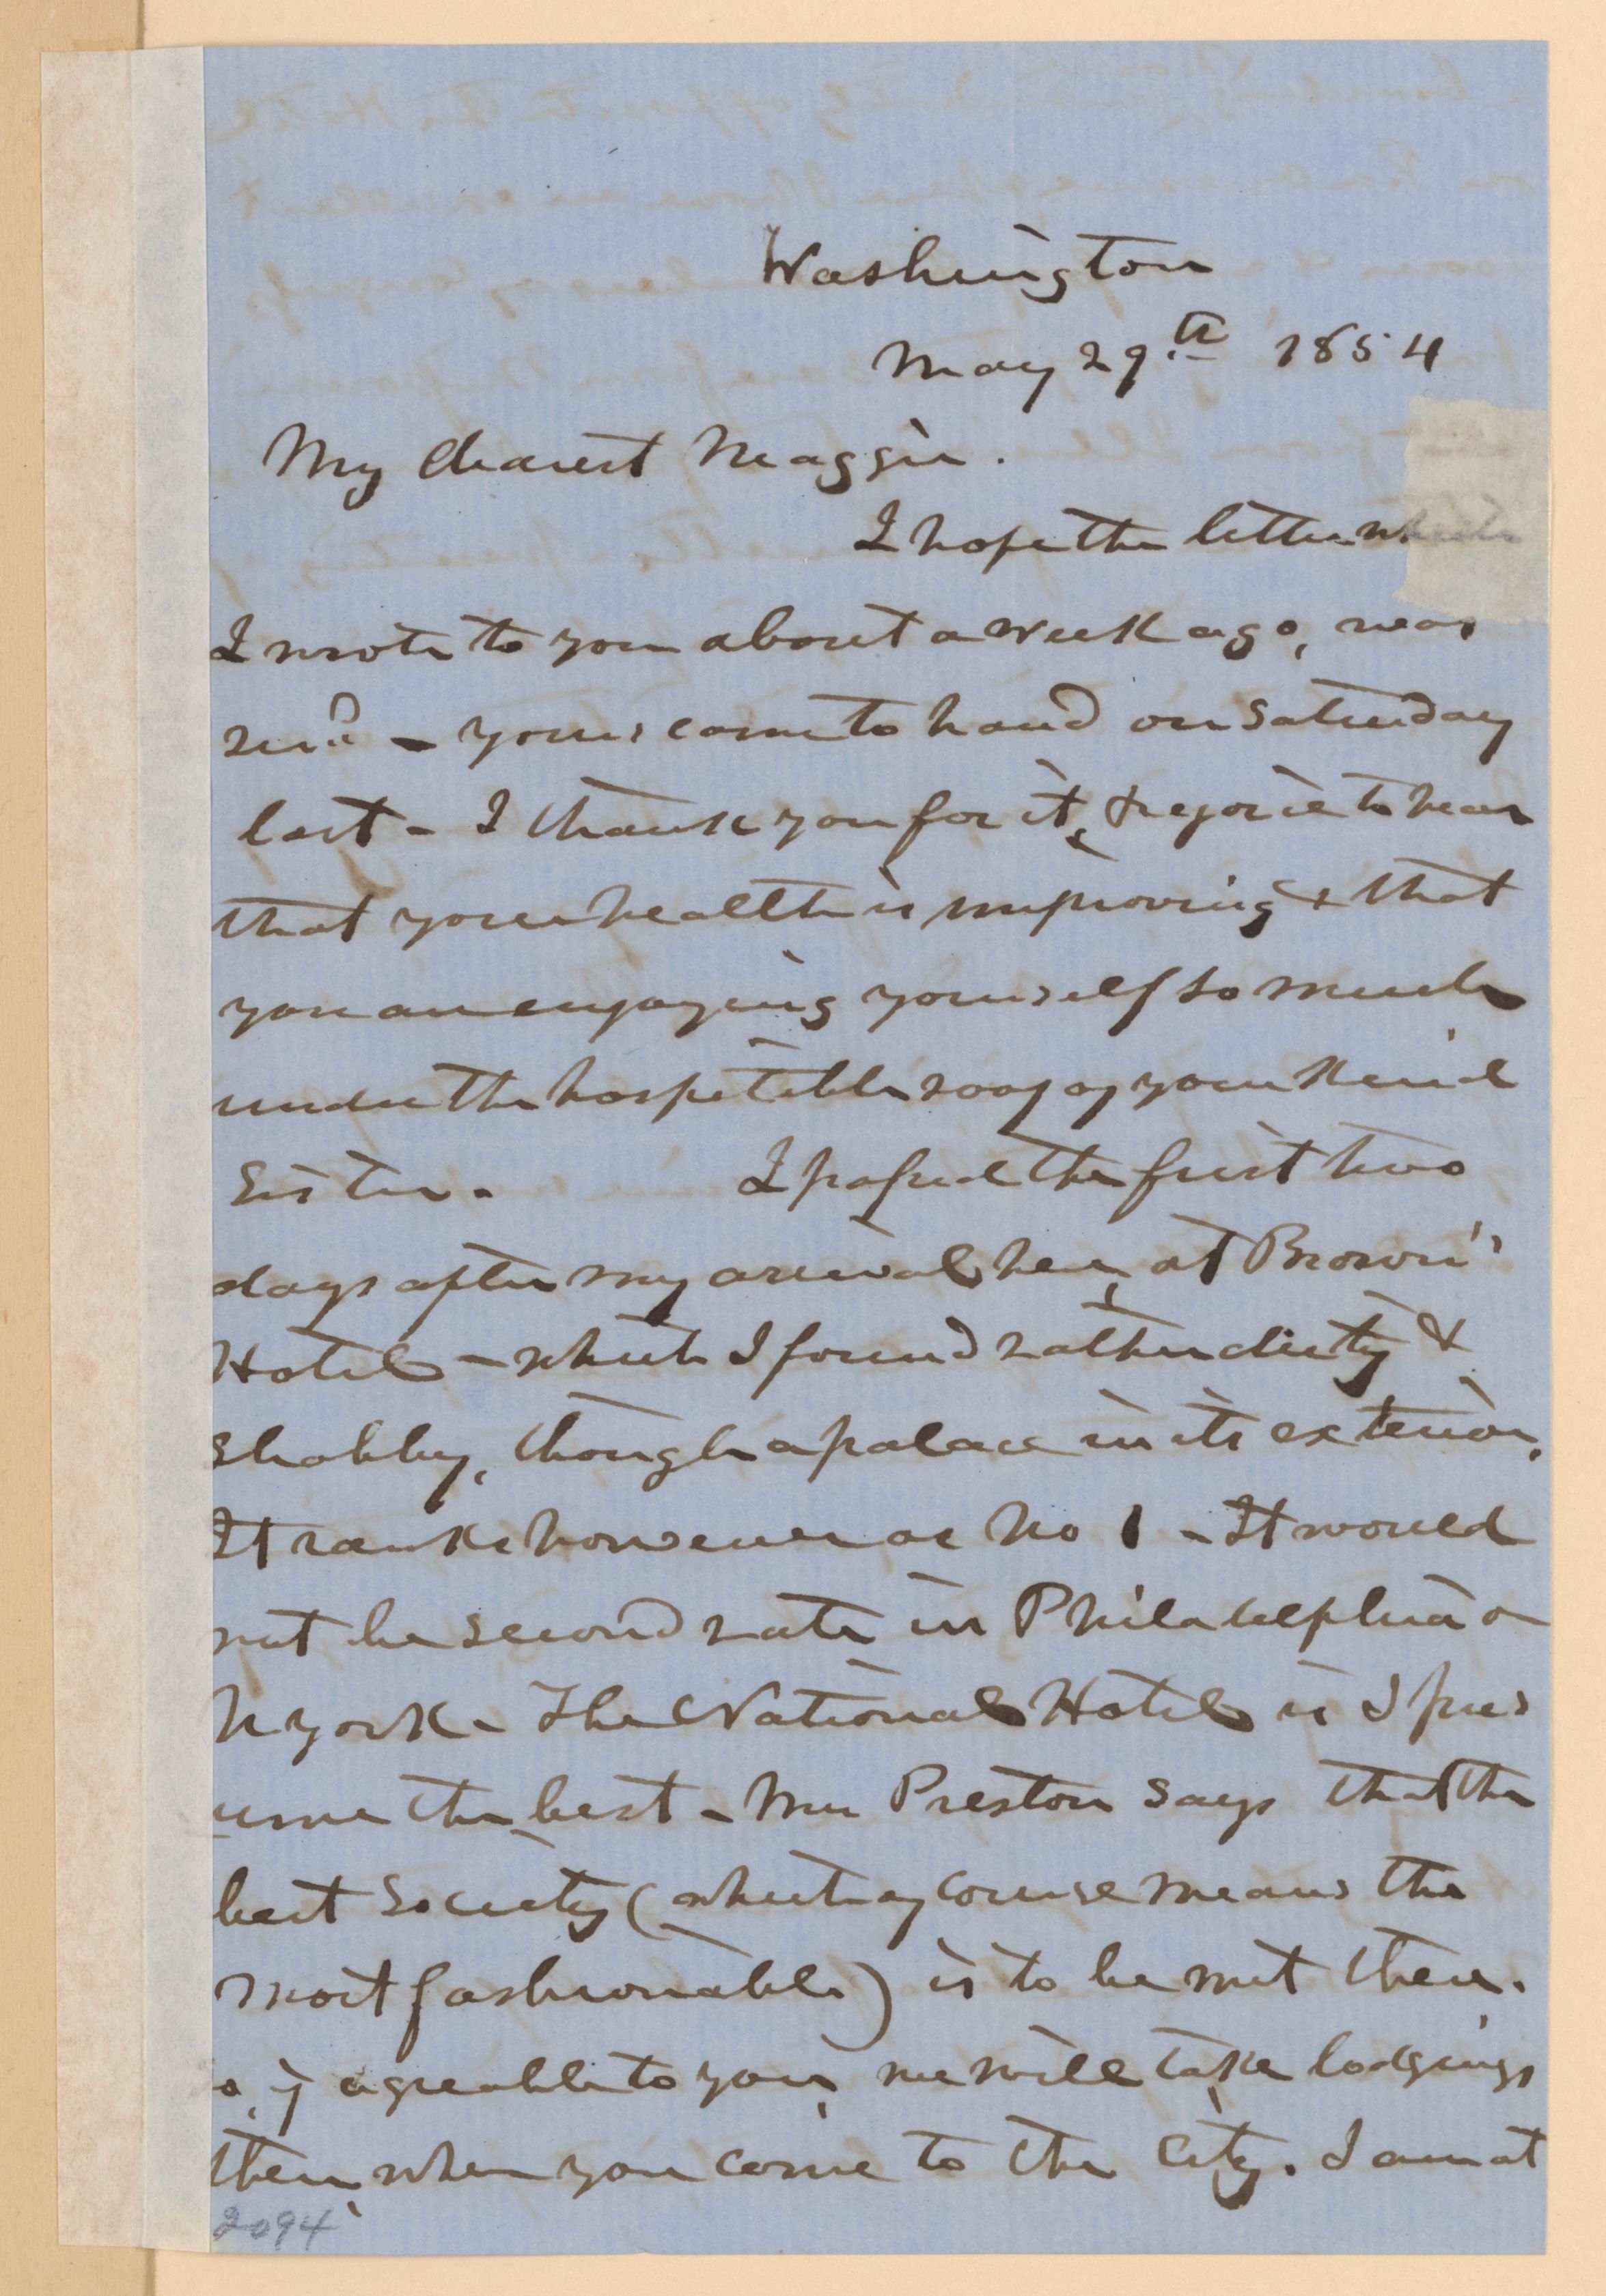 Washington
May 29.th 1854
My dearest Maggie.
I hope the letter which
I wrote to you about a week ago, was
recd - yours came to hand on Saturday
last - I thank you for it, & rejoice to hear
that your health is improving & that
you are enjoying yourself so much
under the hospitable roof of your kind
Sister. I passed the first two
days after my arrival here, at Brown's
Hotel - which I found rather dirty &
shabby, though a palace in its exterior.
It ranks however as No 1 - It would
not be second rate in Philadelphia or
N York - The National Hotel is I pres
ume the best - Mr Preston says that the
best Society (which of course means the
most fashionable) is to be met there.
so, if agreeable to you, we will take lodgings
there, when you come to the City. I am at
2094